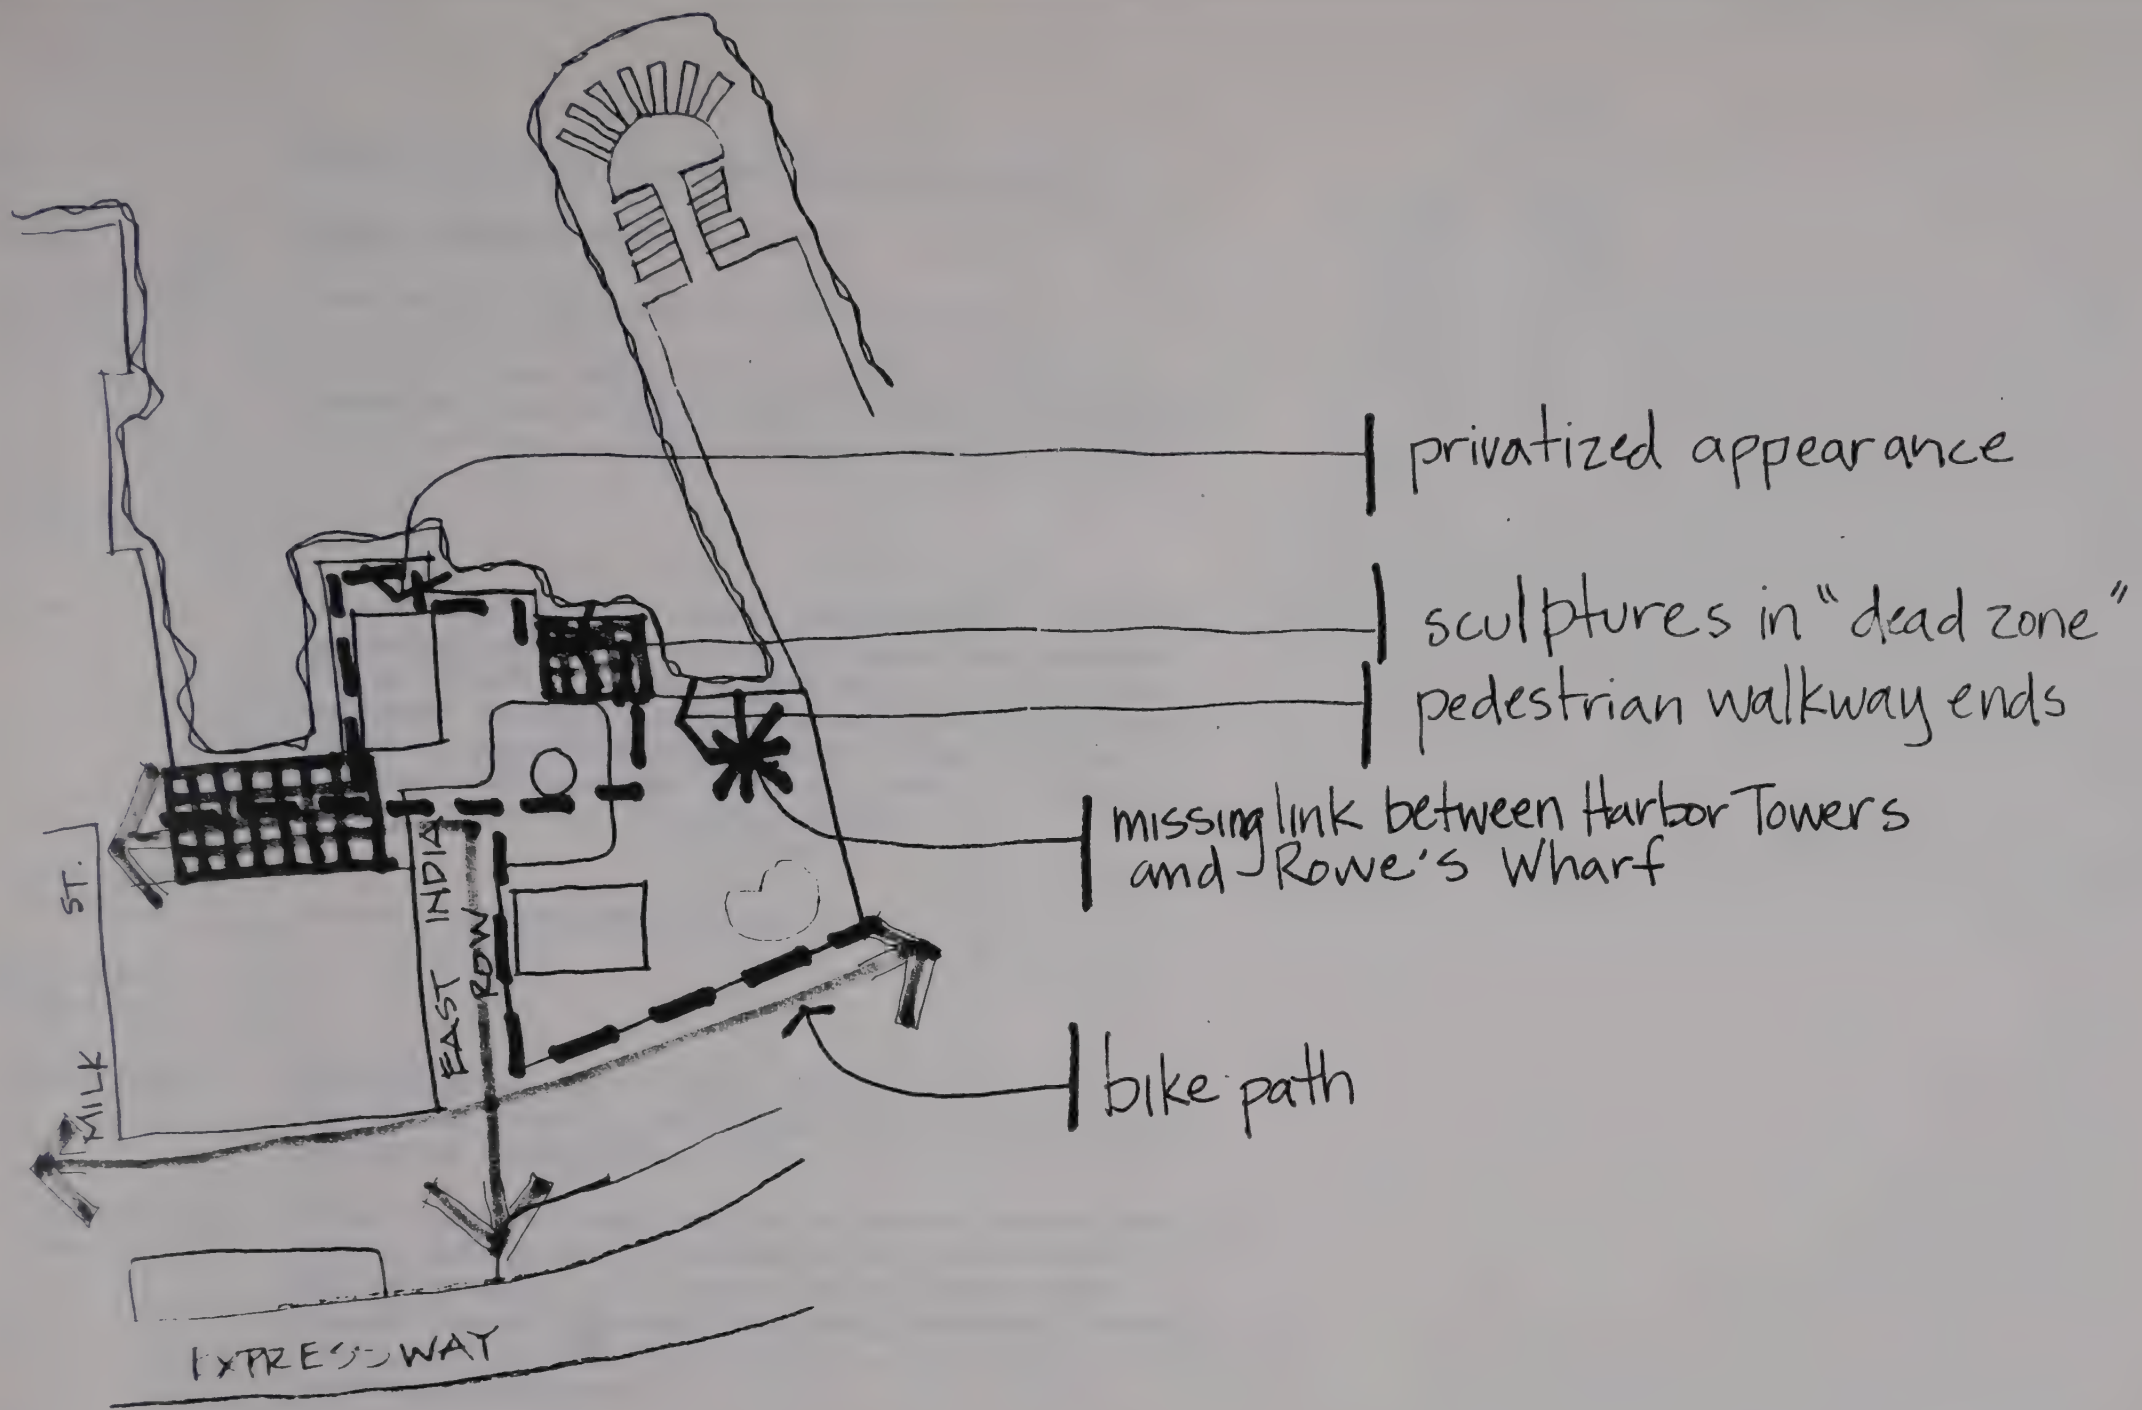 privatized appearance
sculptures in "dead zone"
pedestrian walkway ends
missing link between Harbor Towers
and Rowe's Wharf
bike path
MILK ST.
EAST INDIA
ROW
EXPRESSWAY